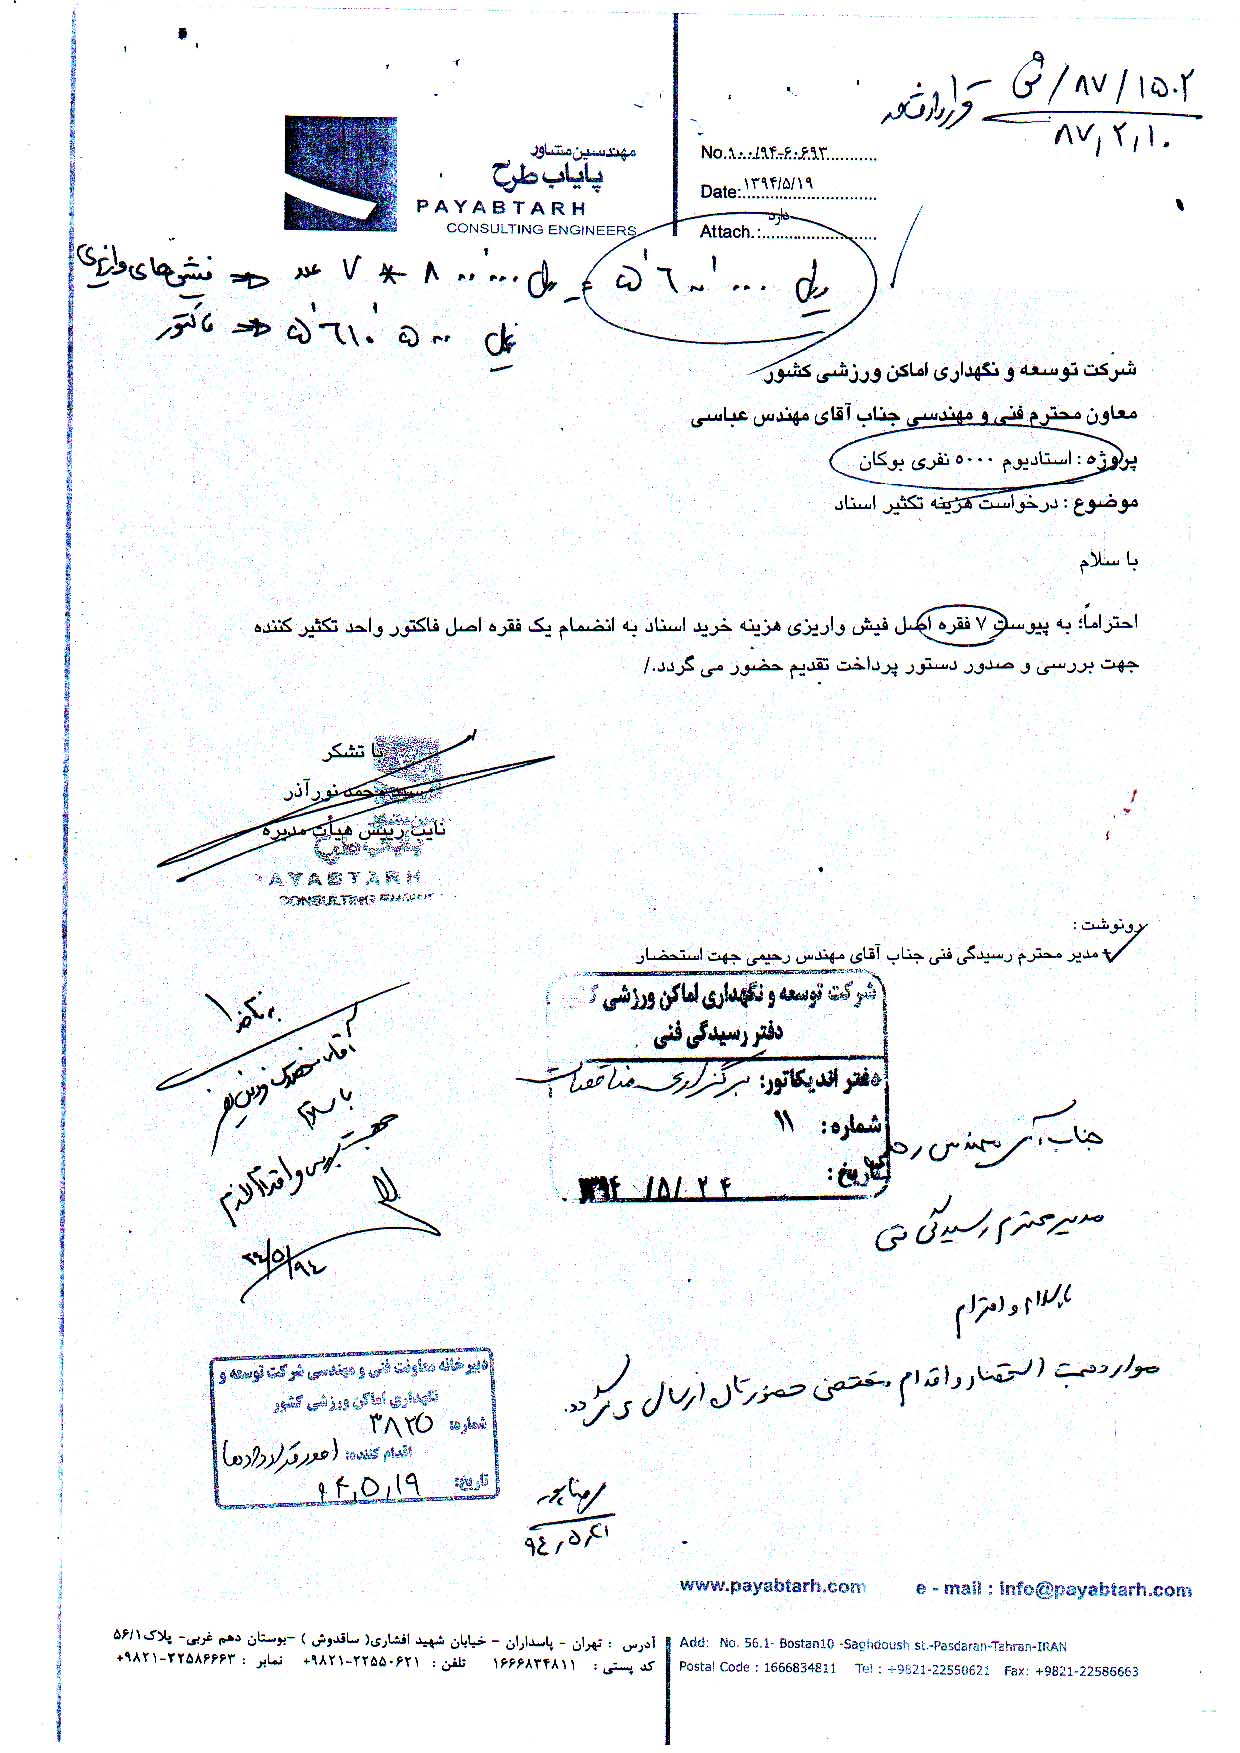 قرارداد شماره ۱۵۰۲/۸۷/ش
۸۷,۲,۱۰
مهندسین مشاور
پایاب طرح
PAYABTARH
CONSULTING ENGINEERS
No.۱۰۰/۹۴-۶۰۶۹۳
Date:۱۳۹۴/۵/۱۹
Attach.:دارد
فیش های واریزی ⇐ ۷ عدد * ۸۰۰'۰۰۰ ریل = ۵'۶۰۰'۰۰۰ ریل
فاکتور ⇐ ۵'۶۱۰'۵۰۰ ریال
شرکت توسعه و نگهداری اماکن ورزشی کشور
معاون محترم فنی و مهندسی جناب آقای مهندس عباسی
پروژه : استادیوم ۵۰۰۰ نفری بوکان
موضوع : درخواست هزینه تکثیر اسناد
با سلام
احتراماً؛ به پیوست ۷ فقره اصل فیش واریزی هزینه خرید اسناد به انضمام یک فقره اصل فاکتور واحد تکثیر کننده
جهت بررسی و صدور دستور پرداخت تقدیم حضور می گردد./
با تشکر
سید محمد نورآذر
نایب رییس هیأت مدیره
پایاب طرح
PAYABTARH
CONSULTING ENGINEERS
رونوشت :
مدیر محترم رسیدگی فنی جناب آقای مهندس رحیمی جهت استحضار
شرکت توسعه و نگهداری اماکن ورزشی
دفتر رسیدگی فنی
دفتر اندیکاتور: برگزاری مناقصات
شماره: ۱۱
تاریخ: ۱۳۹۴/۵/۲۴
آقای
با سلام
جهت بررسی و اقدام لازم
۹۴/۵/۲۴
جناب آقای مهندس رحیمی
مدیر محترم رسیدگی فنی
با سلام و احترام
موارد جهت استحضار و اقدام مقتضی حضورتان ارسال می گردد.
۹۴,۵,۲۱
دبیرخانه معاونت فنی و مهندسی شرکت توسعه و
نگهداری اماکن ورزشی کشور
شماره: ۳۸۲۵
اقدام کننده: امور قراردادها
تاریخ: ۹۴,۵,۱۹
www.payabtarh.com e - mail : info@payabtarh.com
آدرس : تهران - پاسداران - خیابان شهید افشاری( ساقدوش ) -بوستان دهم غربی- پلاک۵۶/۱
کد پستی : ۱۶۶۶۸۳۴۸۱۱ تلفن : ۲۲۵۵۰۶۲۱-۹۸۲۱+ نمابر : ۲۲۵۸۶۶۶۳-۹۸۲۱+
Add: No. 56.1- Bostan10 -Saghdoush st.-Pasdaran-Tehran-IRAN
Postal Code : 1666834811 Tel : +9821-22550621 Fax: +9821-22586663